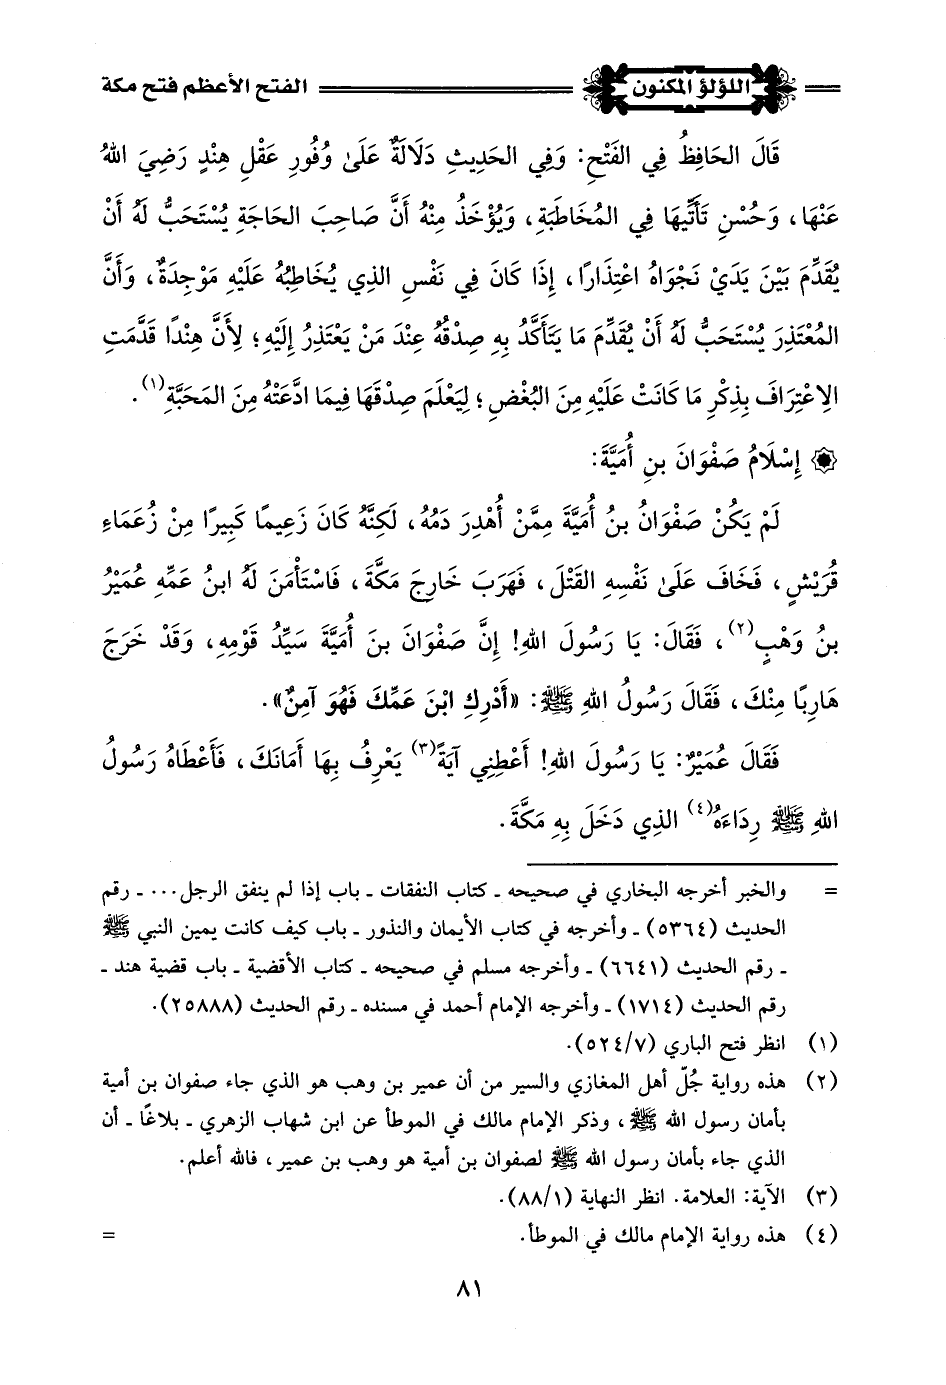 اللؤلؤ المكنون
الفتح الأعظم فتح مكة
قَالَ الحَافِظُ فِي الفَتْحِ: وَفِي الحَدِيثِ دَلَالَةٌ عَلَىٰ وُفُورِ عَقْلِ هِنْدٍ رَضِيَ اللهُ
عَنْهَا، وَحُسْنِ تَأَتِّيهَا فِي المُخَاطَبَةِ، وَيُؤْخَذُ مِنْهُ أَنَّ صَاحِبَ الحَاجَةِ يُسْتَحَبُّ لَهُ أَنْ
يُقَدِّمَ بَيْنَ يَدَيْ نَجْوَاهُ اعْتِذَارًا، إِذَا كَانَ فِي نَفْسِ الذِي يُخَاطِبُهُ عَلَيْهِ مَوْجِدَةٌ، وَأَنَّ
المُعْتَذِرَ يُسْتَحَبُّ لَهُ أَنْ يُقَدِّمَ مَا يَتَأَكَّدُ بِهِ صِدْقُهُ عِنْدَ مَنْ يَعْتَذِرُ إِلَيْهِ؛ لِأَنَّ هِنْدًا قَدَّمَتِ
الِاعْتِرَافَ بِذِكْرِ مَا كَانَتْ عَلَيْهِ مِنَ البُغْضِ؛ لِيَعْلَمَ صِدْقَهَا فِيمَا ادَّعَتْهُ مِنَ المَحَبَّةِ(١).
إِسْلَامُ صَفْوَانَ بنِ أُمَيَّةَ:
لَمْ يَكُنْ صَفْوَانُ بنُ أُمَيَّةَ مِمَّنْ أُهْدِرَ دَمُهُ، لَكِنَّهُ كَانَ زَعِيمًا كَبِيرًا مِنْ زُعَمَاءِ
قُرَيْشٍ، فَخَافَ عَلَىٰ نَفْسِهِ القَتْلَ، فَهَرَبَ خَارِجَ مَكَّةَ، فَاسْتَأْمَنَ لَهُ ابنُ عَمِّهِ عُمَيْرُ
بنُ وَهْبٍ(٢)، فَقَالَ: يَا رَسُولَ اللهِ! إِنَّ صَفْوَانَ بنَ أُمَيَّةَ سَيِّدُ قَوْمِهِ، وَقَدْ خَرَجَ
هَارِبًا مِنْكَ، فَقَالَ رَسُولُ اللهِ ﷺ: «أَدْرِكِ ابْنَ عَمِّكَ فَهُوَ آمِنٌ».
فَقَالَ عُمَيْرٌ: يَا رَسُولَ اللهِ! أَعْطِنِي آيَةً(٣) يَعْرِفُ بِهَا أَمَانَكَ، فَأَعْطَاهُ رَسُولُ
اللهِ ﷺ رِدَاءَهُ(٤) الذِي دَخَلَ بِهِ مَكَّةَ.
= والخبر أخرجه البخاري في صحيحه ـ كتاب النفقات ـ باب إذا لم ينفق الرجل... ـ رقم
الحديث (٥٣٦٤) ـ وأخرجه في كتاب الأيمان والنذور ـ باب كيف كانت يمين النبي ﷺ
ـ رقم الحديث (٦٦٤١) ـ وأخرجه مسلم في صحيحه ـ كتاب الأقضية ـ باب قضية هند ـ
رقم الحديث (١٧١٤) ـ وأخرجه الإمام أحمد في مسنده ـ رقم الحديث (٢٥٨٨٨).
(١) انظر فتح الباري (٥٢٤/٧).
(٢) هذه رواية جُلّ أهل المغازي والسير من أن عمير بن وهب هو الذي جاء صفوان بن أمية
بأمان رسول الله ﷺ، وذكر الإمام مالك في الموطأ عن ابن شهاب الزهري ـ بلاغًا ـ أن
الذي جاء بأمان رسول الله ﷺ لصفوان بن أمية هو وهب بن عمير، فالله أعلم.
(٣) الآية: العلامة. انظر النهاية (٨٨/١).
(٤) هذه رواية الإمام مالك في الموطأ. =
٨١